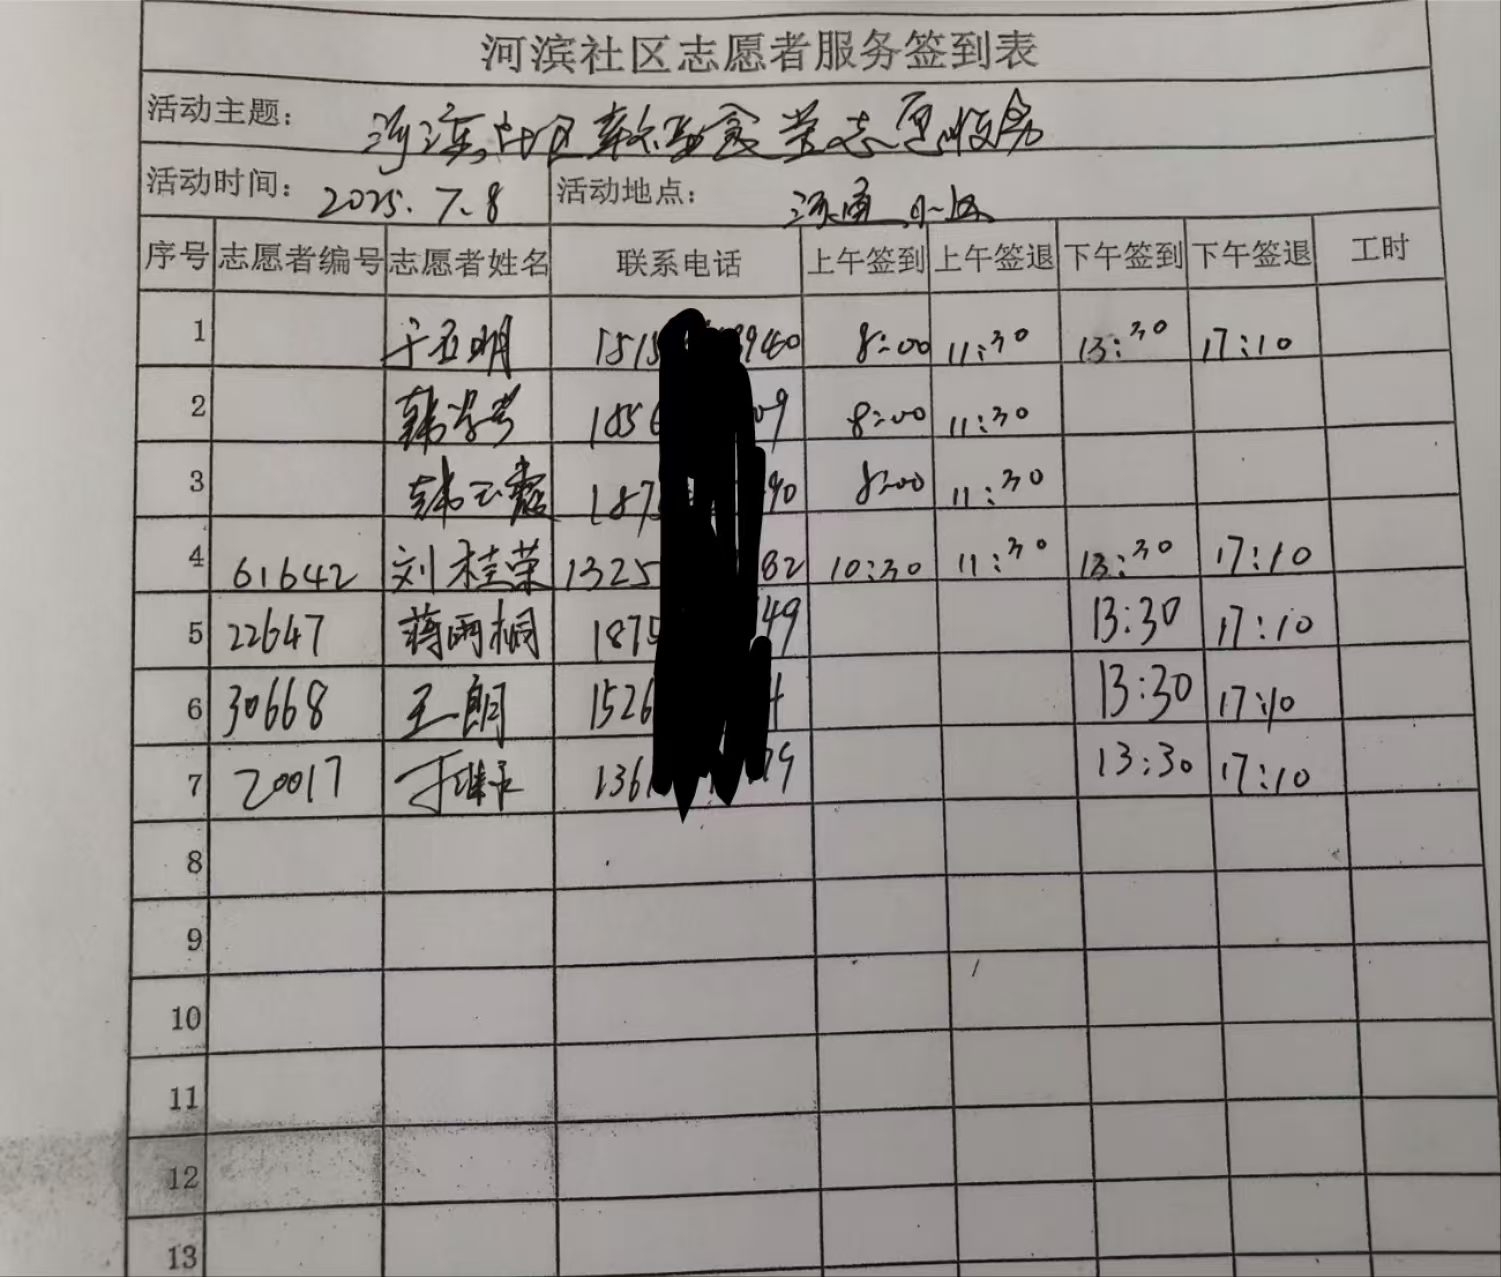 河滨社区志愿者服务签到表
活动主题： 河滨社区敬老食堂志愿服务
活动时间： 2025.7.8 活动地点： 河南小区
序号 志愿者编号 志愿者姓名 联系电话 上午签到 上午签退 下午签到 下午签退 工时
1 于五明 1515 940 8:00 11:30 13:30 17:10
2 韩 185 09 8:00 11:30
3 韩玉霞 187 90 8:00 11:30
4 61642 刘桂荣 1325 82 10:30 11:30 13:30 17:10
5 22647 蒋雨桐 187 49 13:30 17:10
6 30668 王朗 1526 13:30 17:10
7 20017 136 13:30 17:10
8
9
10
11
12
13